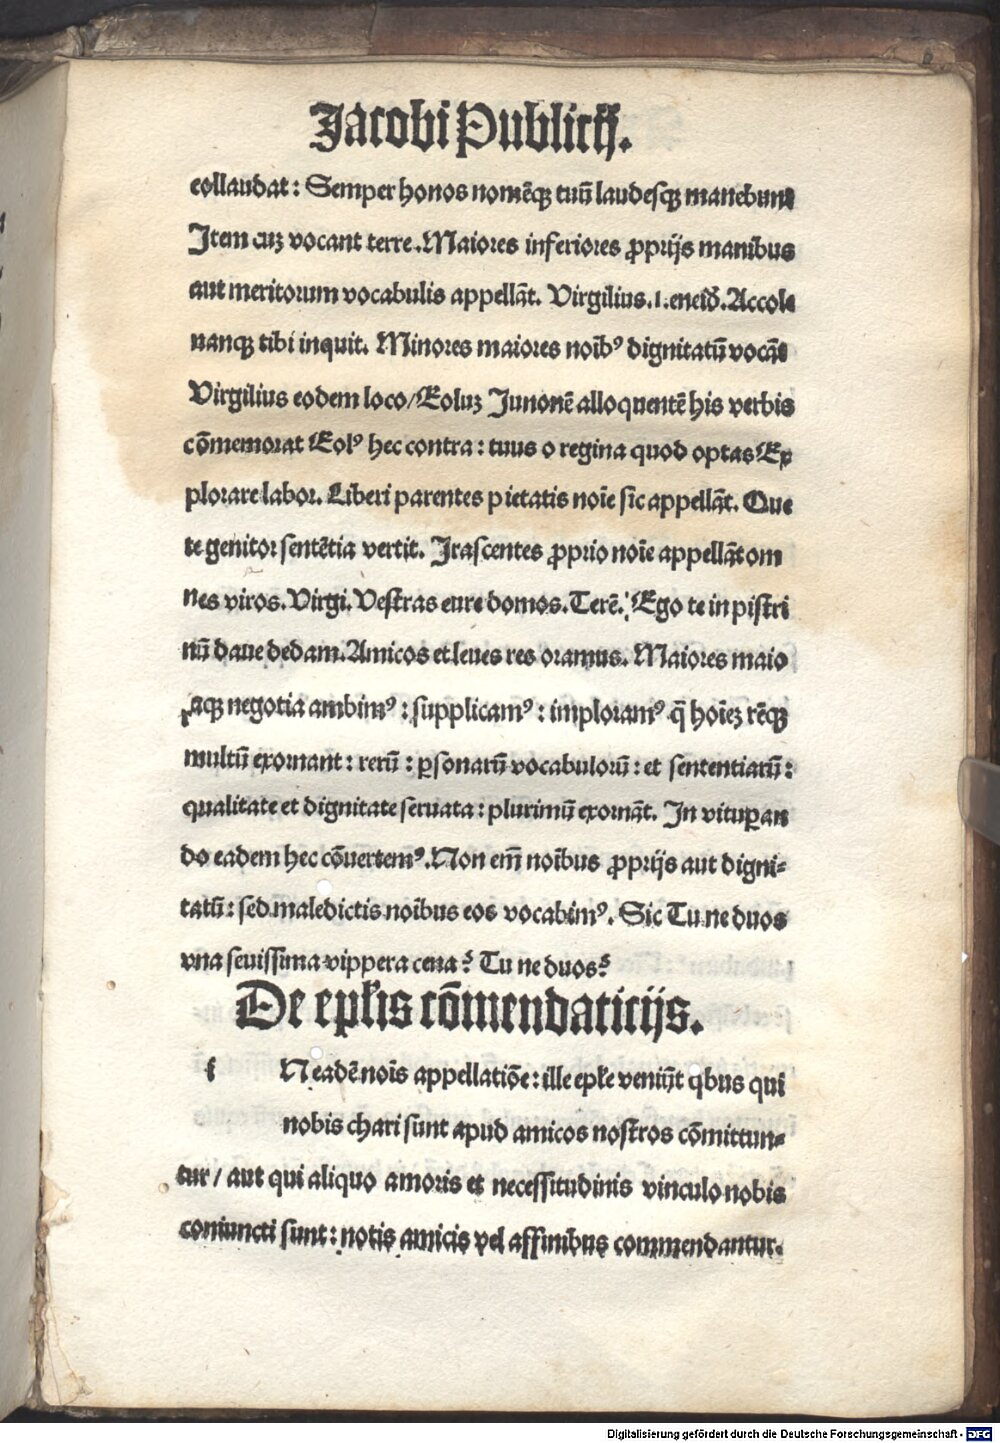 Jacobi Publicii.
collaudat: Semper honos nomēqꝫ tuū laudesqꝫ manebunt
Item cuꝫ vocant terre. Maiores inferiores ꝓprijs manibus
aut meritorum vocabulis appellāt. Virgilius.1.eneid̄. Accole
nanqꝫ tibi inquit. Minores maiores noīb⁹ dignitatū vocāt
Virgilius eodem loco/Eoluꝫ Junonē alloquentē his verbis
cōmemorat Eol⁹ hec contra: tuus o regina quod optas Ex
plorare labor. Liberi parentes pietatis noīe sic appellāt. Que
te genitor sentētia vertit. Irascentes ꝓprio noīe appellāt om
nes viros. Virgi. Vestras eure domos. Terē. Ego te in pistri
nū daue dedam. Amicos et leues res oramus. Maiores maio
raqꝫ negotia ambim⁹: supplicam⁹: imploram⁹ q̄ hoīeꝫ rēqꝫ
multū exornant: rerū: ꝑsonarū vocabulorū: et sententiarū:
qualitate et dignitate seruata: plurimū exornāt. In vituꝑan
do eadem hec cōuertem⁹. Non em̄ noībus ꝓprijs aut digni-
tatū: sed maledictis noībus eos vocabim⁹. Sic Tu ne duos
vna seuissima vippera cena? Tu ne duos?
De epłis cōmendaticijs.
i Neadē nois appellatiōe: ille epłe veniūt qbus qui
nobis chari sunt apud amicos nostros cōmittun-
tur/ aut qui aliquo amoris et necessitudinis vinculo nobis
coniuncti sunt: notis amicis vel affinibus commendantur.
Digitalisierung gefördert durch die Deutsche Forschungsgemeinschaft - DFG